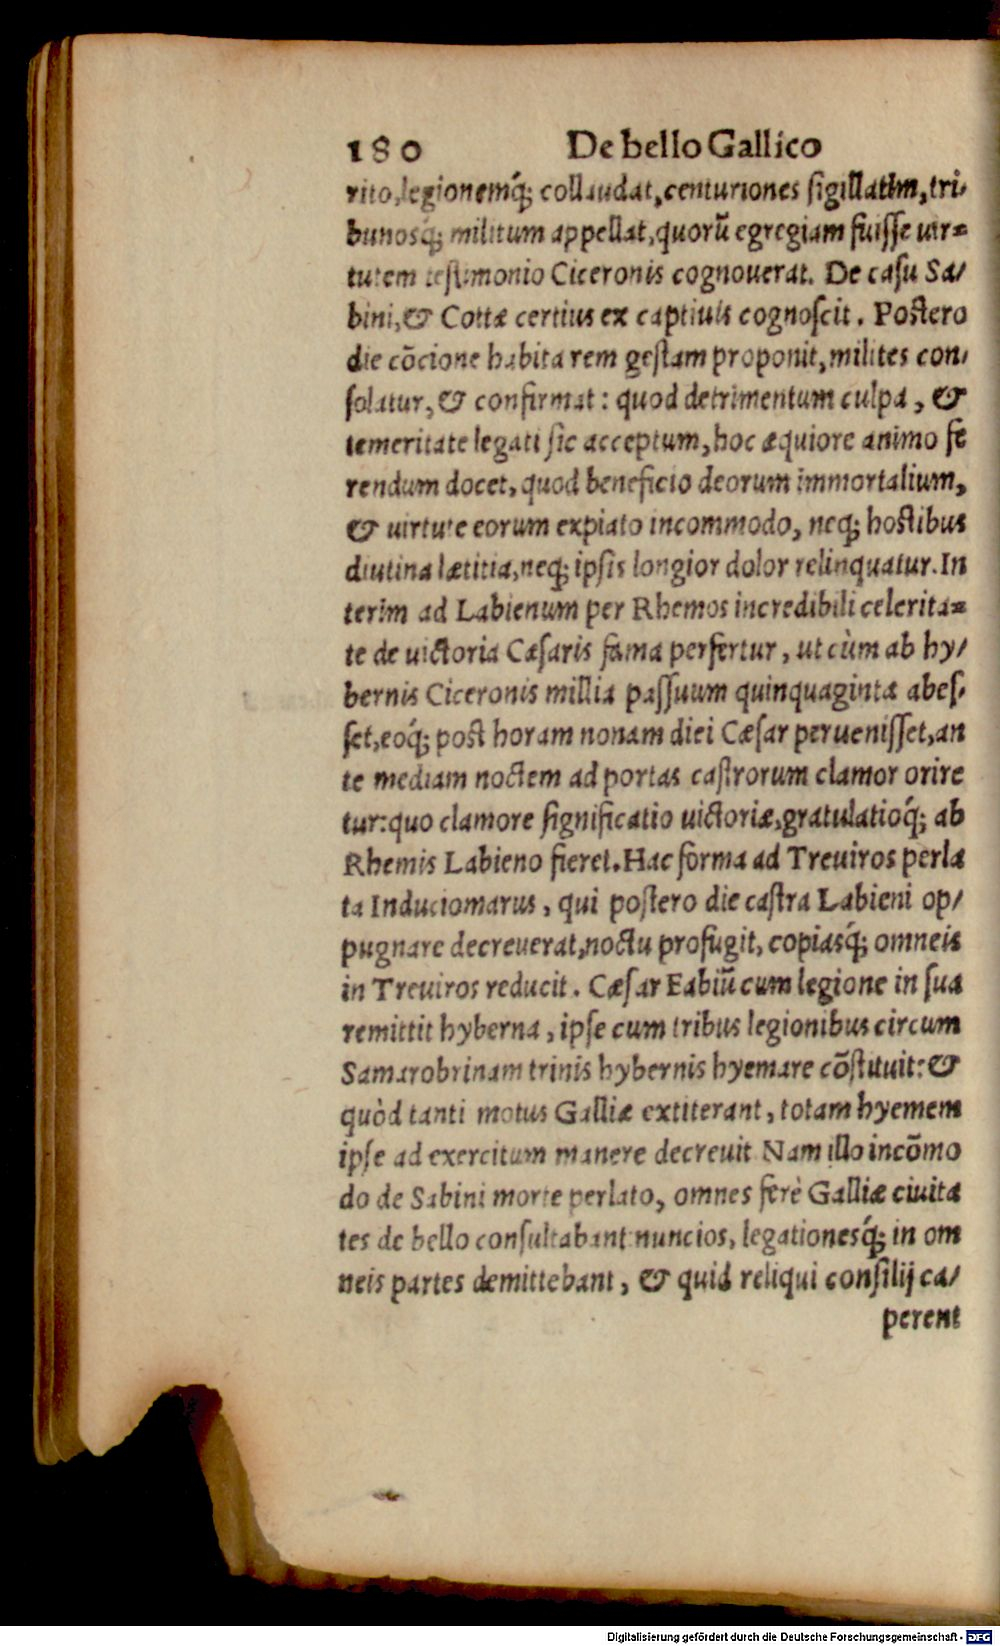 180 De bello Gallico
rito, legionemq́; collaudat, centuriones sigillatim, tri-
bunosq́; militum appellat, quorũ egregiam fuisse uir-
tutem testimonio Ciceronis cognouerat. De casu Sa-
bini, & Cottæ certius ex captiuis cognoscit. Postero
die cõcione habita rem gestam proponit, milites con-
solatur, & confirmat: quod detrimentum culpa, &
temeritate legati sic acceptum, hoc æquiore animo fe
rendum docet, quod beneficio deorum immortalium,
& uirtute eorum expiato incommodo, neq; hostibus
diutina lætitia, neq; ipsis longior dolor relinquatur. In
terim ad Labienum per Rhemos incredibili celerita-
te de uictoria Cæsaris fama perfertur, ut cùm ab hy-
bernis Ciceronis millia passuum quinquaginta abes-
set, eoq́; post horam nonam diei Cæsar peruenisset, an
te mediam noctem ad portas castrorum clamor orire
tur: quo clamore significatio uictoriæ, gratulatioq́; ab
Rhemis Labieno fieret. Hac forma ad Treuiros perla
ta Induciomarus, qui postero die castra Labieni op-
pugnare decreuerat, noctu profugit, copiasq́; omneis
in Treuiros reducit. Cæsar Eabiũ cum legione in sua
remittit hyberna, ipse cum tribus legionibus circum
Samarobrinam trinis hybernis hyemare cõstituit: &
quòd tanti motus Galliæ extiterant, totam hyemem
ipse ad exercitum manere decreuit Nam illo incõmo
do de Sabini morte perlato, omnes ferè Galliæ ciuita
tes de bello consultabant nuncios, legationesq́; in om
neis partes demittebant, & quid reliqui consilij ca-
perent
Digitalisierung gefördert durch die Deutsche Forschungsgemeinschaft - DFG